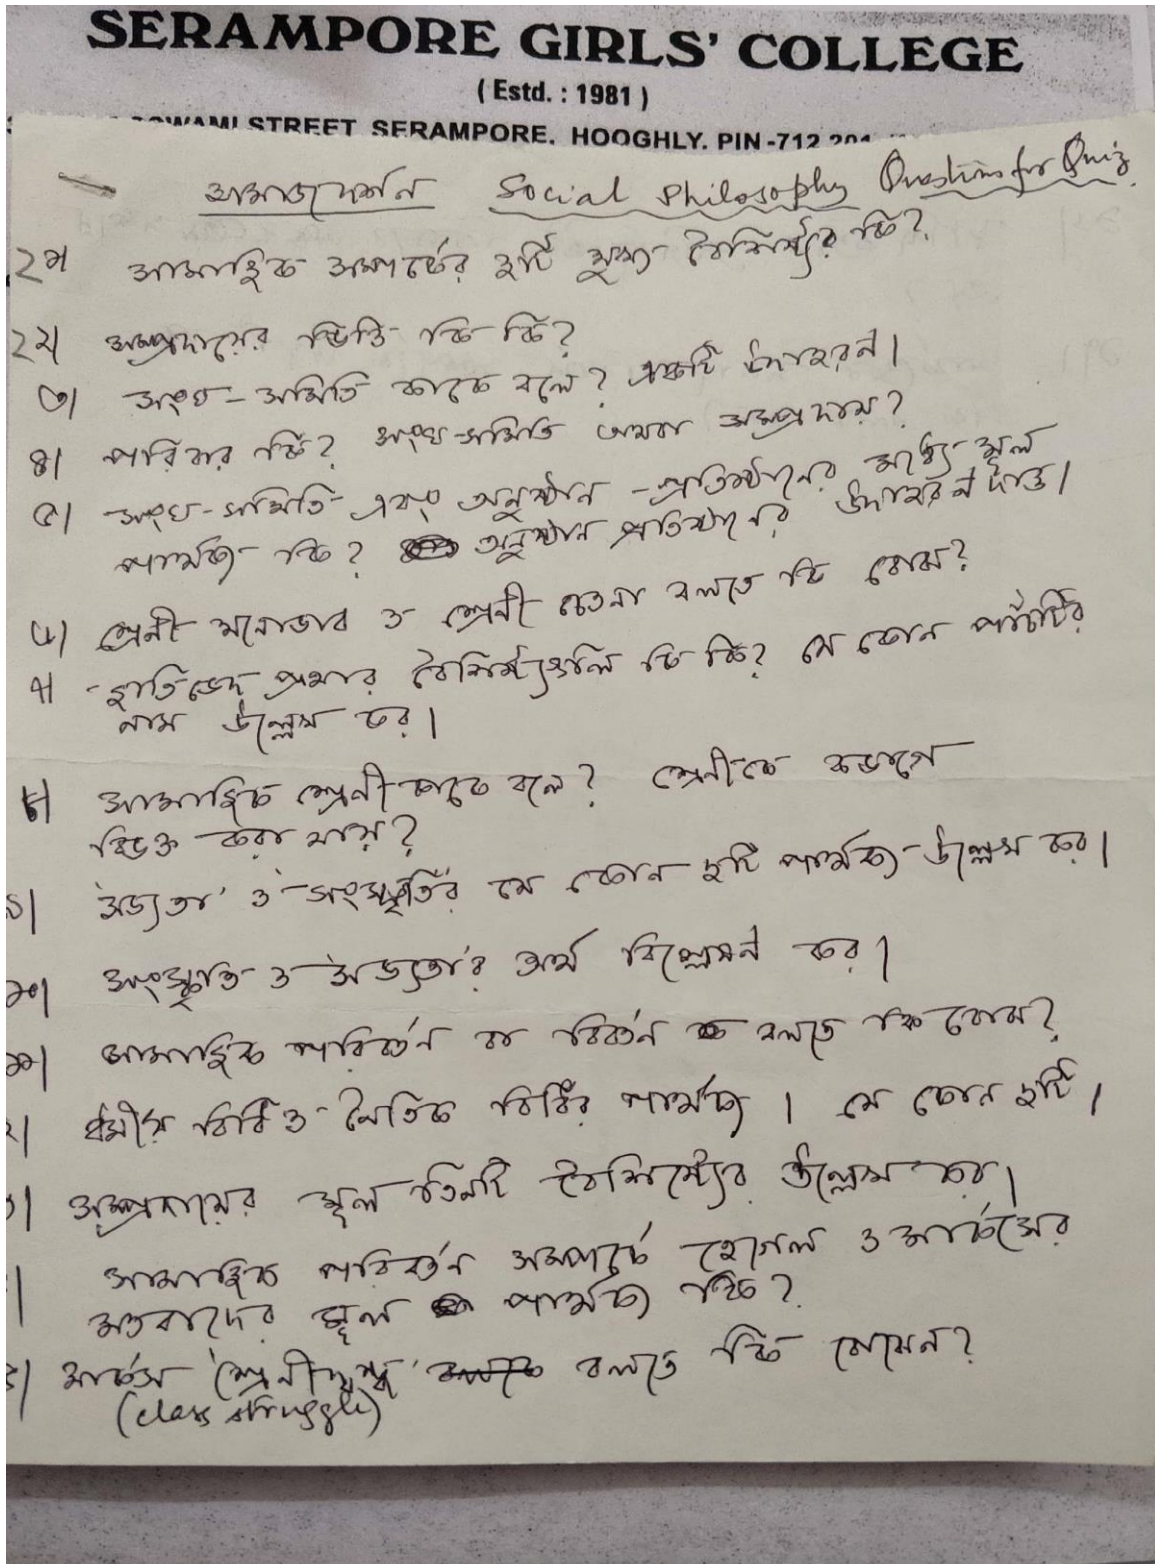 SERAMPORE GIRLS' COLLEGE
( Estd. : 1981 )
STREET SERAMPORE. HOOGHLY. PIN-712 201
সমাজদর্শন Social Philosophy Questions for Quiz
সামাজিক সম্পর্কের দুটি মুখ্য বৈশিষ্ট্যর কি?
২২। সম্প্রদায়ের ভিত্তি কি কি?
৩। সংঘ-সমিতি কাকে বলে? একটি উদাহরন।
৪। পরিবার কি? সংঘ-সমিতি অথবা সম্প্রদায়?
৫। সংঘ-সমিতি এবং অনুষ্ঠান-প্রতিষ্ঠানের মধ্যে মূল
পার্থক্য কি? অনুষ্ঠান প্রতিষ্ঠানের উদাহরন দাও।
৬। শ্রেনী মনোভাব ও শ্রেনী চেতনা বলতে কি বোঝ?
৭। জাতিভেদ প্রথার বৈশিষ্ট্যগুলি কি কি? যে কোন পাঁচটির
নাম উল্লেখ কর।
৮। সামাজিক শ্রেনী কাকে বলে? শ্রেনীকে কভাগে
বিভক্ত করা যায়?
৯। 'সভ্যতা' ও 'সংস্কৃতির' যে কোন দুটি পার্থক্য উল্লেখ কর।
১০। সংস্কৃতি ও সভ্যতার অর্থ বিশ্লেষন কর।
১১। সামাজিক পরিবর্তন বা বিবর্তন বলতে কি বোঝ?
২। ধর্মীয় বিধি ও নৈতিক বিধির পার্থক্য। যে কোন দুটি।
৩। সম্প্রদায়ের মূল তিনটি বৈশিষ্ট্যের উল্লেখ কর।
সামাজিক পরিবর্তন সম্পর্কে হেগেল ও মার্কসের
মতবাদের মূল পার্থক্য কি?
মার্কস 'শ্রেনীদ্বন্দ্ব' বলতে কি বোঝেন?
(class struggle)